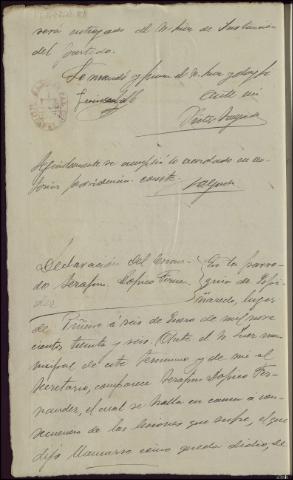 será entregado al Sr Juez de Instrucción
del partido.
Lo mandó y firma el Sr Juez y doy fe
Ante mi
Seguidamente se cumplió lo acordado en an-
terior providencia. conste.
Declaración del lesiona-
do Serafin Dopico Fernan-
dez
En la parro-
quia de
lugar
de Piñeiro á seis de Enero de mil nove
cientos treinta y seis. Ante el Sr Juez mu-
nicipal de este termino y de mi el
Secretario, comparece Serafin Dopico Fer-
nandez, el cual se halla en cama á con-
secuencia de las lesiones que sufre, el que
dijo llamarse como queda dicho, de